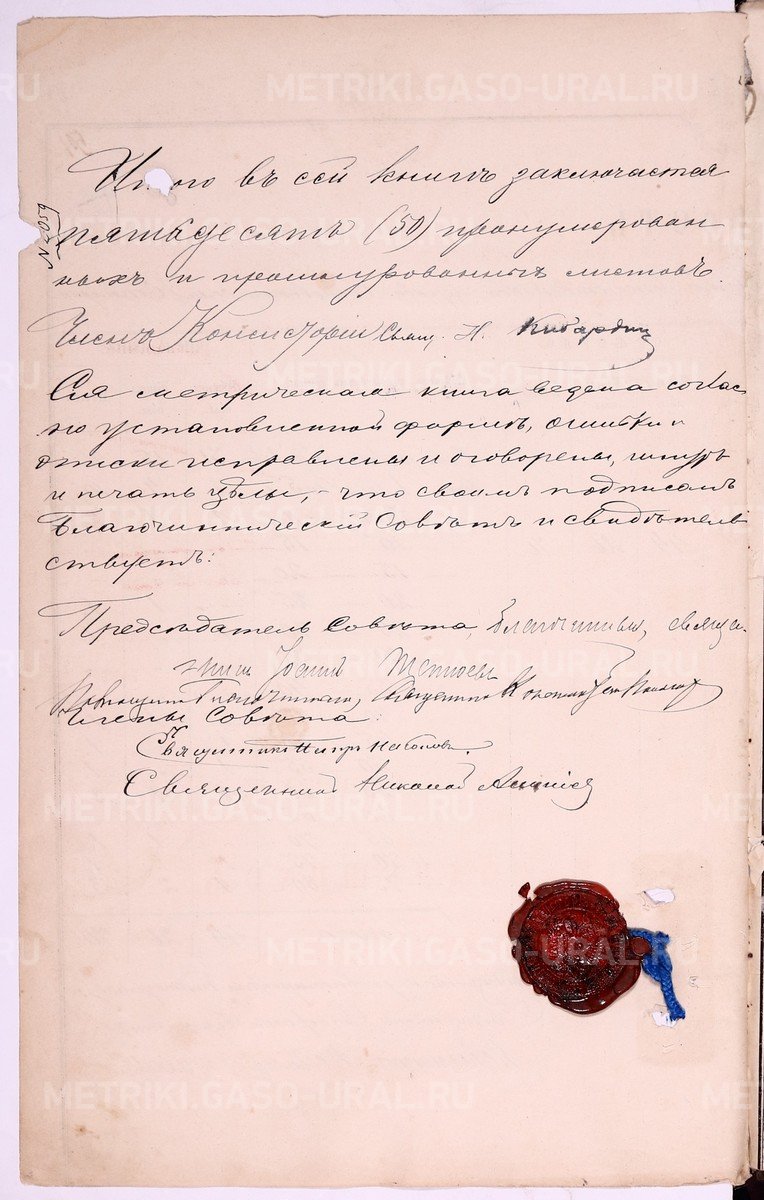 Итого въ сей книгѣ заключается
пятьдесятъ (50) пронумерован
ныхъ и прошнурованныхъ листовъ.
№ 2059
Членъ Консисторіи Свящ. Н.
Сія метрическая книга ведена соглас
но установленной формѣ, ошибки и
описки исправлены и оговорены, шнуръ
и печать цѣлы, - что своимъ подписомъ
Благочинническій Совѣтъ и свидѣтель
ствуетъ:
Предсѣдатель Совѣта, Благочинный, свяще-
нникъ Іоаннъ
Члены Совѣта:
Священникъ Петръ
Священникъ Николай
METRIKI.GASO-URAL.RU